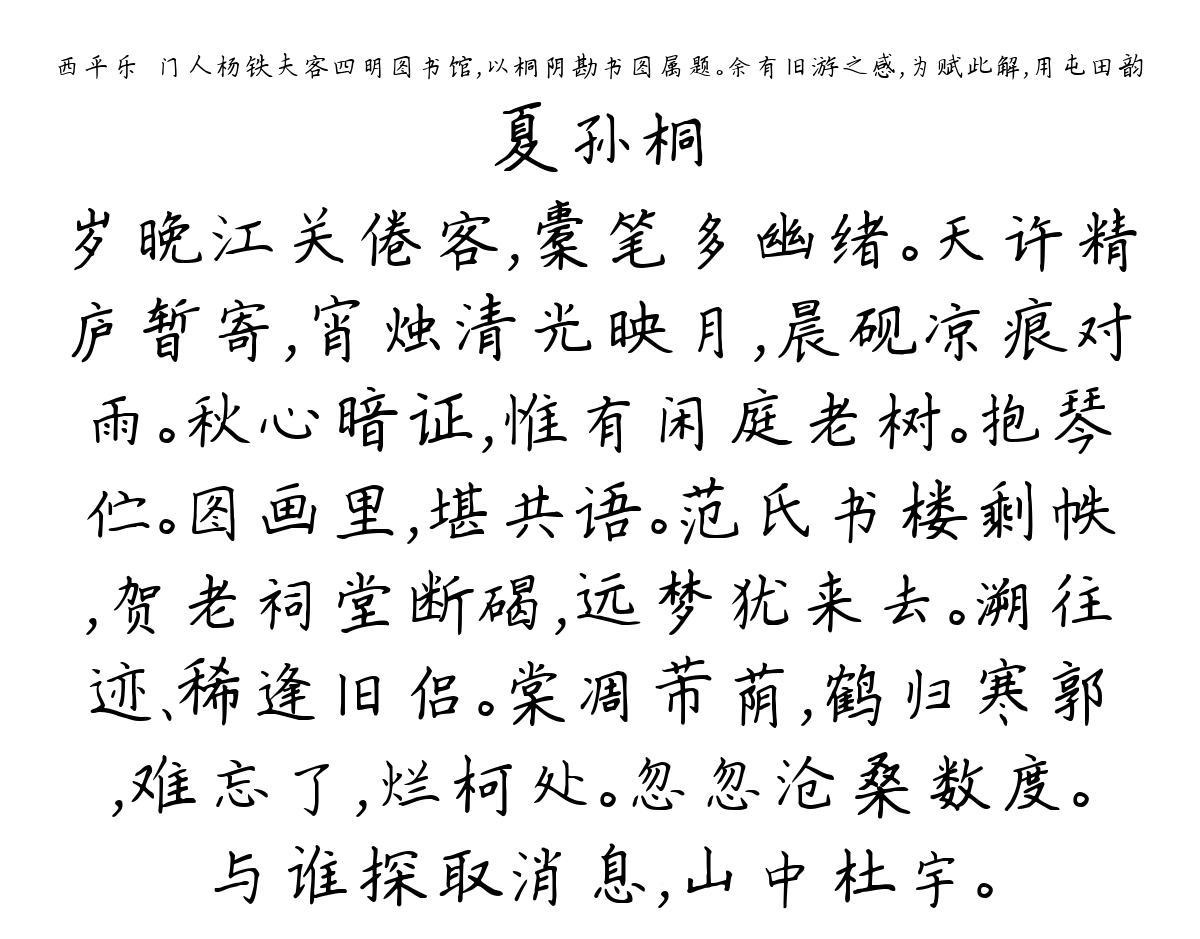 西平乐 门人杨铁夫客四明图书馆,以桐阴勘书图属题。余有旧游之感,为赋此解,用屯田韵
夏孙桐
岁晚江关倦客,橐笔多幽绪。天许精
庐暂寄,宵烛清光映月,晨砚凉痕对
雨。秋心暗证,惟有闲庭老树。抱琴
伫。图画里,堪共语。范氏书楼剩帙
,贺老祠堂断碣,远梦犹来去。溯往
迹、稀逢旧侣。棠凋芾荫,鹤归寒郭
,难忘了,烂柯处。忽忽沧桑数度。
与谁探取消息,山中杜宇。